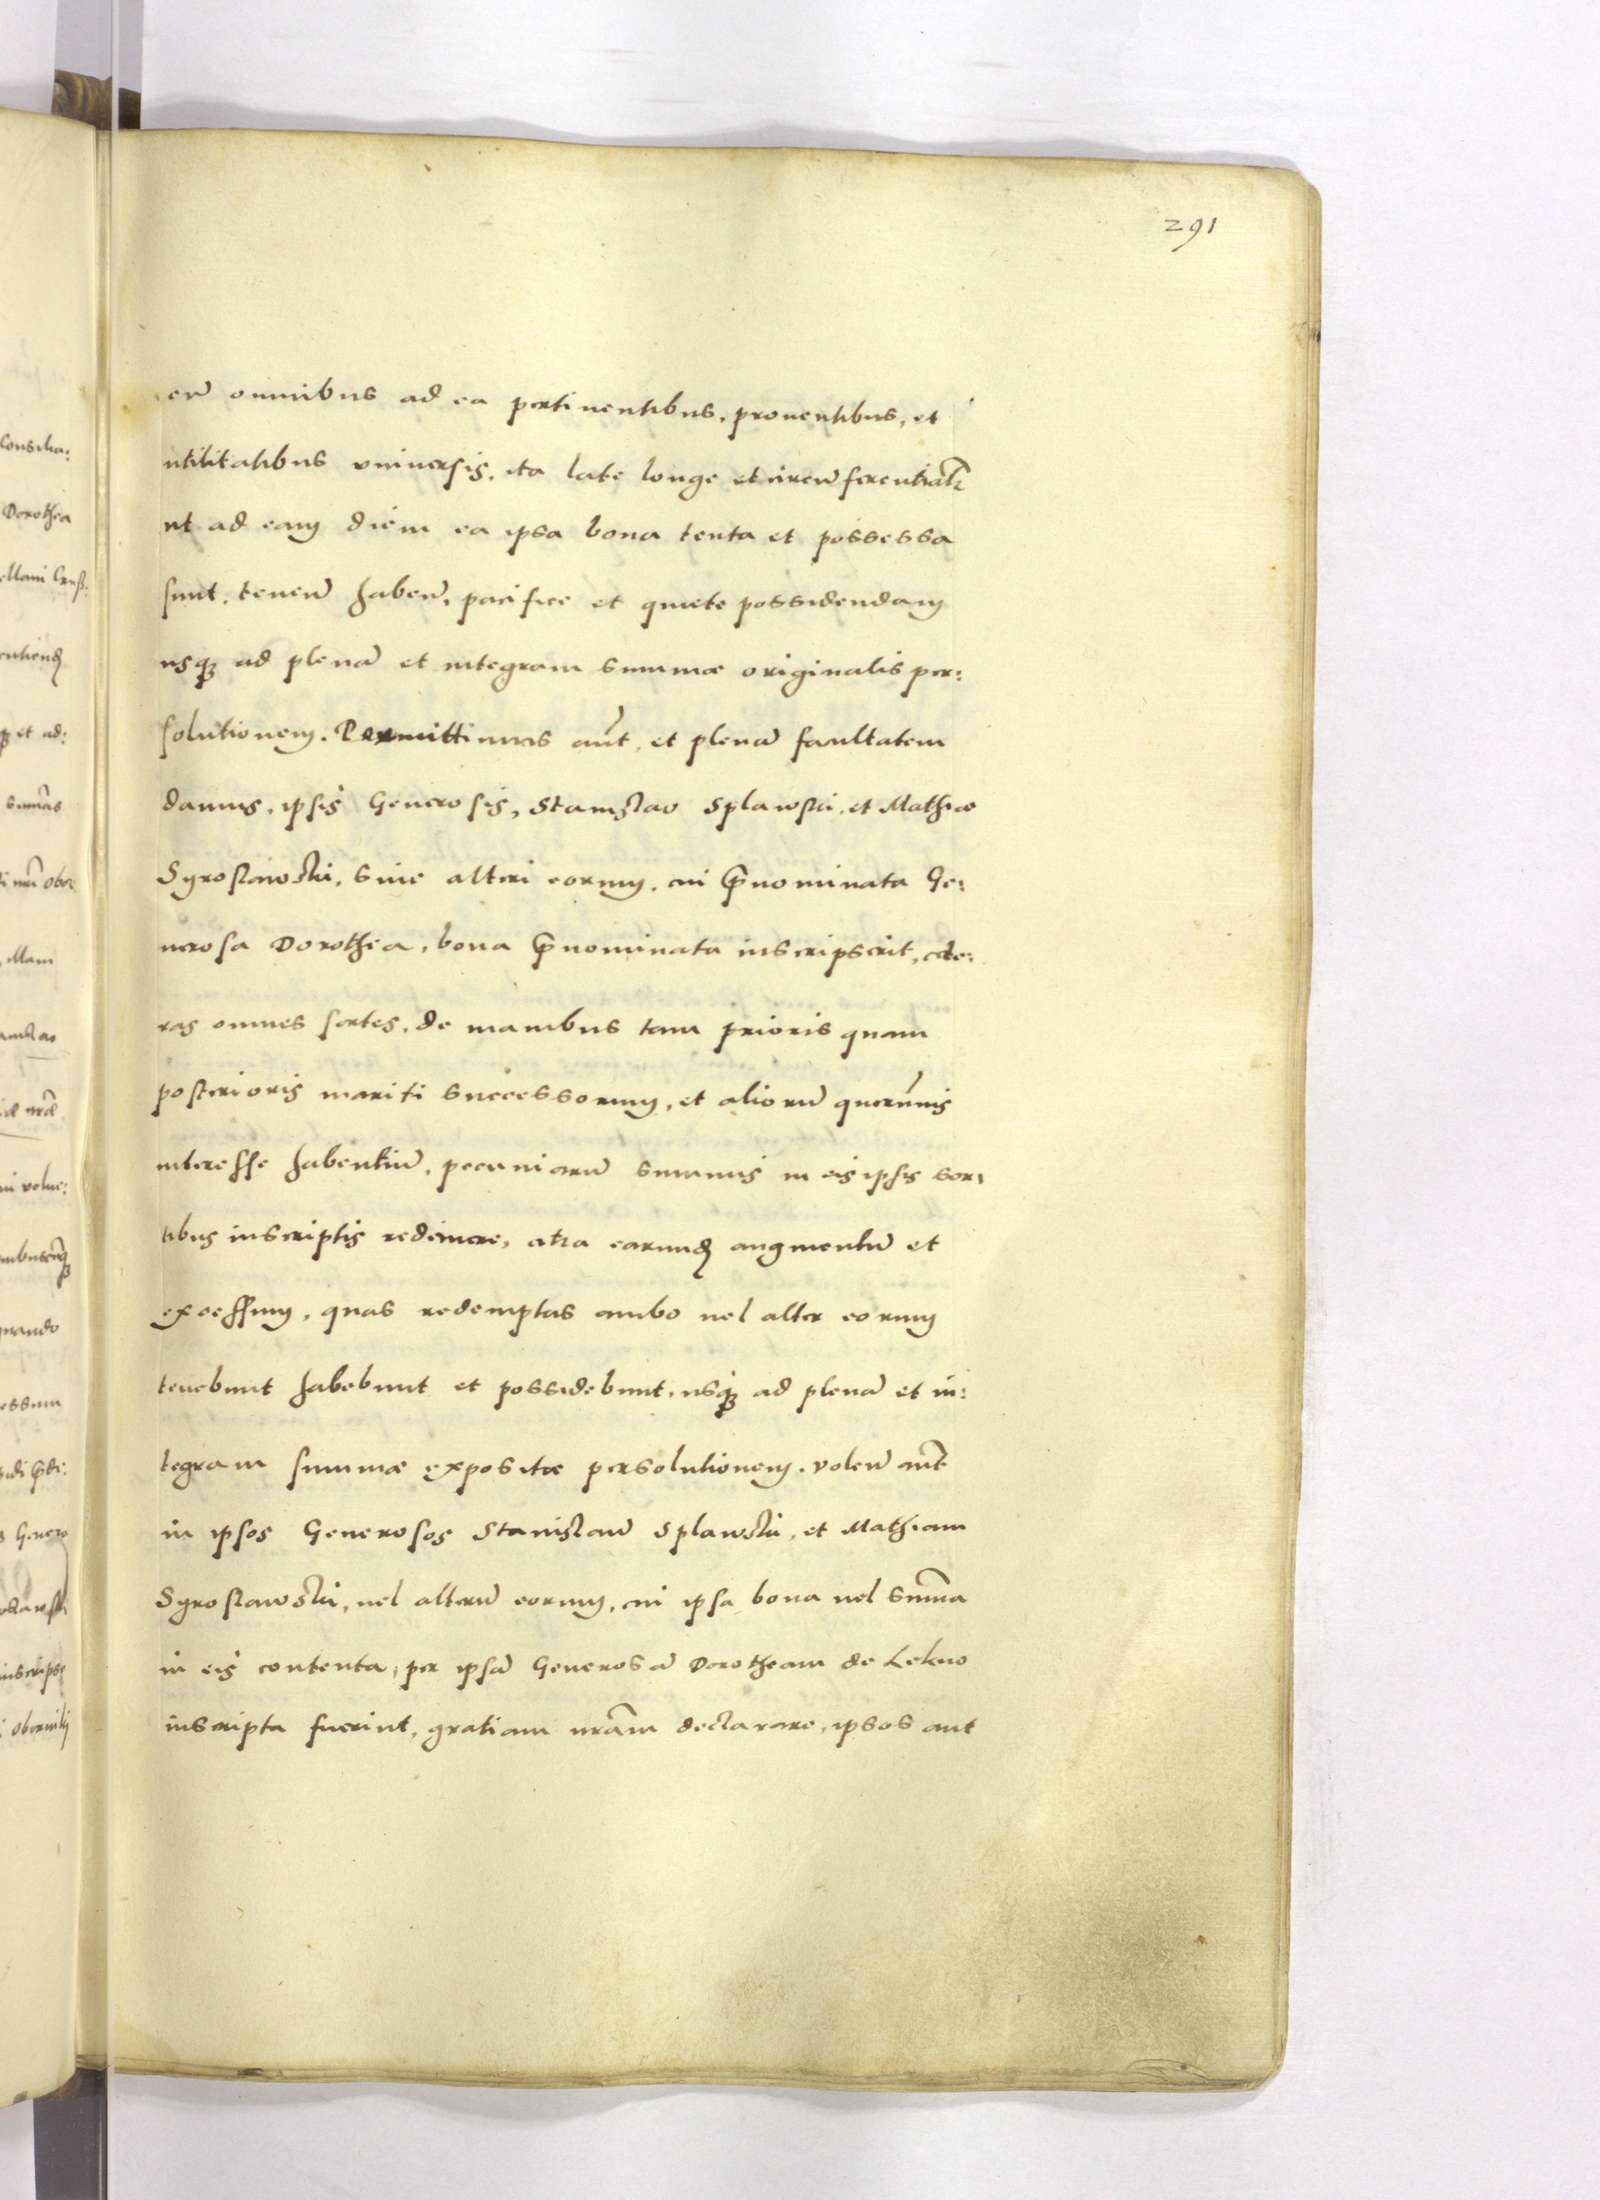 291
cũ omnibus ad ea pertinentibus, prouentibus, et
utilitatibus vniuersis, ita late longe et circũferentialr
ut ad eam diem ea ipsa bona tenta et possessa
sunt, tenen̄ haben̄, pacifice et quiete possidendam
usqꝫ ad plenã et integram summæ originalis per:
solutionem. Permittimus aũt, et plenã facultatem
damus, ipsis Generosis, Stanislao Splawski, et Mathiæ
Syroslawski, siue alteri eorum, cui p̄nominata Ge:
nerosa Dorothea, bona p̄nominata inscripserit, cete:
ras omnes sortes, de manibus tam prioris quam
posterioris mariti successorum, et aliorũ quorũuis
interesse habentiũ, pecuniarũ summis in eis ipsis sor:
tibus inscriptis redimere, citra earund augmentũ et
excessum, quas redemptas ambo uel alter eorum
tenebunt habebunt et possidebunt, usqꝫ ad plenã et in:
tegram summæ expositæ persolutionem. volen̄ aũt
in ipsos Generosos Stanislaũ Splawski, et Mathiam
Syroslawski, uel alterũ eorum, cui ipsa bona uel sum̄a
in eis contenta, per ipsã Generosã Dorotheam de Lekno
inscripta fuerint, gratiam nr̃am declarare, ipsos aut
Consilia:
Dorothea
et ad:
sum̃as
illam
uolue:
quando
essum
Genero
inscripse